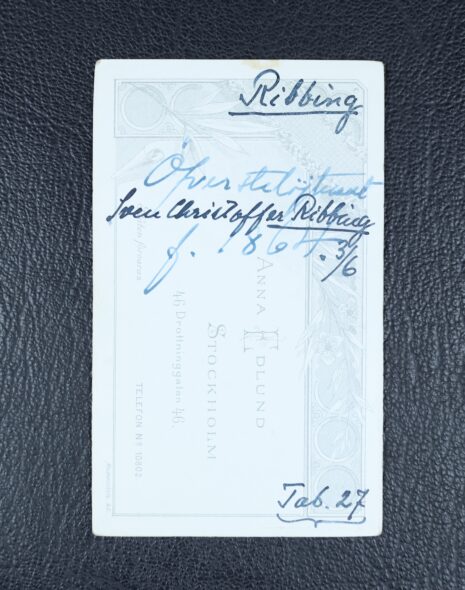 Ribbing
Öfverstelöjtnant
Sven Christoffer Ribbing
f. 1864. 3/6
ANNA EDLUND
STOCKHOLM
46 Drottninggatan 46.
TELEFON No 10802
Tab. 27